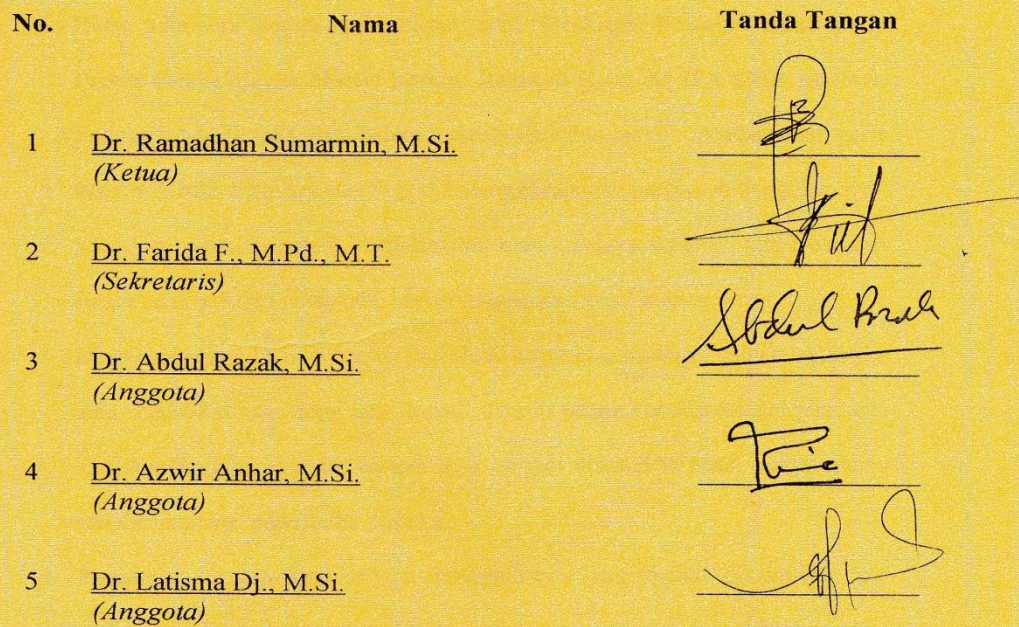 No. Nama Tanda Tangan
1 Dr. Ramadhan Sumarmin, M.Si.
(Ketua)
2 Dr. Farida F., M.Pd., M.T.
(Sekretaris)
Abdul Razak
3 Dr. Abdul Razak, M.Si.
(Anggota)
4 Dr. Azwir Anhar, M.Si.
(Anggota)
5 Dr. Latisma Dj., M.Si.
(Anggota)